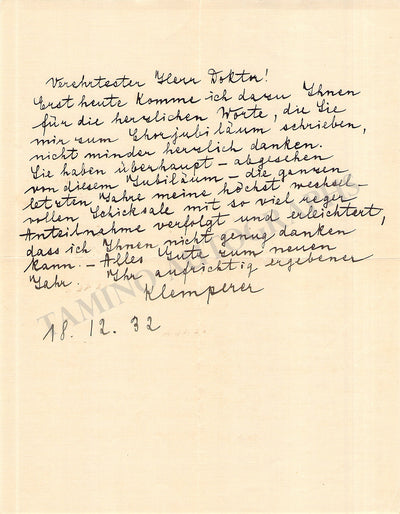 Verehrtester Herr Doktor!
Erst heute komme ich dazu Ihnen
für die herzlichen Worte, die Sie
mir zum Chorjubiläum schrieben,
nicht minder herzlich danken.
Sie haben überhaupt – abgesehen
von diesem Jubiläum – die ganzen
letzten Jahre meine höchst wechsel-
vollen Schicksale mit so viel reger
Anteilnahme verfolgt und erleichtert,
dass ich Ihnen nicht genug danken
kann. – Alles Gute zum neuen
Jahr. Ihr aufrichtig ergebener
Klemperer
18. 12. 32
TAMINO AUTOGRAPHS